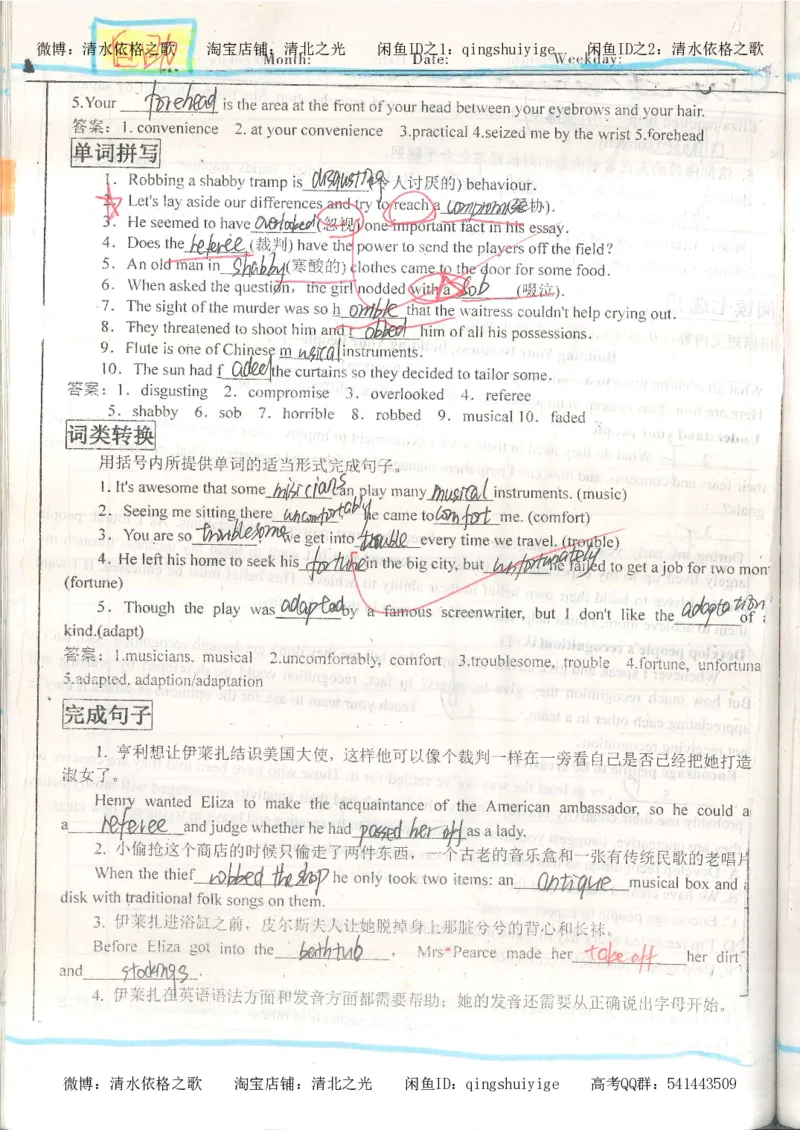 微博：清水依格之歌 淘宝店铺：清北之光 闲鱼ID之1：qingshuiyige 闲鱼ID之2：清水依格之歌
自助
Month: Date: Weekday:
5.Your forehead is the area at the front of your head between your eyebrows and your hair.
答案：1. convenience 2. at your convenience 3.practical 4.seized me by the wrist 5.forehead
单词拼写
1. Robbing a shabby tramp is disgusting(令人讨厌的) behaviour.
2. Let's lay aside our differences and try to reach a compromise(妥协).
3. He seemed to have overlooked(忽视) one important fact in his essay.
4. Does the referee(裁判) have the power to send the players off the field?
5. An old man in shabby(寒酸的) clothes came to the door for some food.
6. When asked the question, the girl nodded with a sob (啜泣).
7. The sight of the murder was so h orrible that the waitress couldn't help crying out.
8. They threatened to shoot him and r obbed him of all his possessions.
9. Flute is one of Chinese m usical instruments.
10. The sun had f aded the curtains so they decided to tailor some.
答案：1. disgusting 2. compromise 3. overlooked 4. referee
5. shabby 6. sob 7. horrible 8. robbed 9. musical 10. faded
词类转换
用括号内所提供单词的适当形式完成句子。
1. It's awesome that some misicians can play many musical instruments. (music)
2. Seeing me sitting there uncomfortably he came to comfort me. (comfort)
3. You are so troublesome we get into trouble every time we travel. (trouble)
4. He left his home to seek his fortune in the big city, but unfortunately he failed to get a job for two mon
(fortune)
5. Though the play was adapted by a famous screenwriter, but I don't like the adaptation of
kind.(adapt)
答案：1.musicians, musical 2.uncomfortably, comfort 3.troublesome, trouble 4.fortune, unfortuna
5.adapted, adaption/adaptation
完成句子
1. 亨利想让伊莱扎结识美国大使，这样他可以像个裁判一样在一旁看自己是否已经把她打造
淑女了。
Henry wanted Eliza to make the acquaintance of the American ambassador, so he could a
a referee and judge whether he had passed her off as a lady.
2. 小偷抢这个商店的时候只偷走了两件东西，一个古老的音乐盒和一张有传统民歌的老唱片
When the thief robbed the shop he only took two items: an antique musical box and
disk with traditional folk songs on them.
3. 伊莱扎进浴缸之前，皮尔斯夫人让她脱掉身上那脏兮兮的背心和长袜。
Before Eliza got into the bathtub, Mrs Pearce made her take off her dirt
and stockings.
4. 伊莱扎在英语语法方面和发音方面都需要帮助；她的发音还需要从正确说出字母开始。
微博：清水依格之歌 淘宝店铺：清北之光 闲鱼ID：qingshuiyige 高考QQ群：541443509